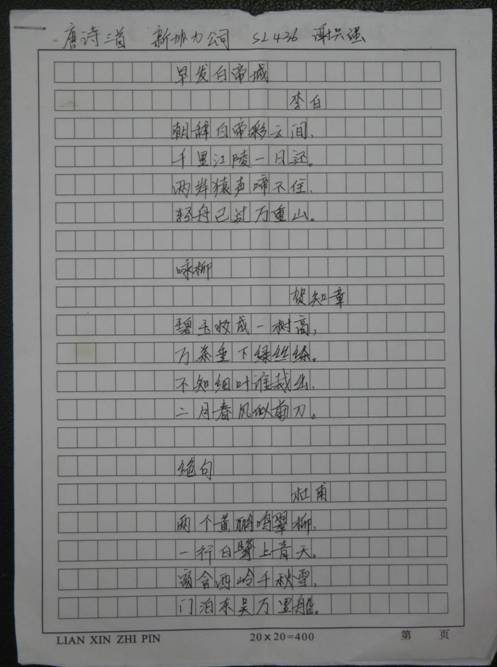 唐诗三首 新协力公司 SL436
早发白帝城
李白
朝辞白帝彩云间,
千里江陵一日还。
两岸猿声啼不住,
轻舟已过万重山。
咏柳
贺知章
碧玉妆成一树高,
万条垂下绿丝绦。
不知细叶谁裁出,
二月春风似剪刀。
绝句
杜甫
两个黄鹂鸣翠柳,
一行白鹭上青天。
窗含西岭千秋雪,
门泊东吴万里船。
LIAN XIN ZHI PIN 20×20=400 第 页